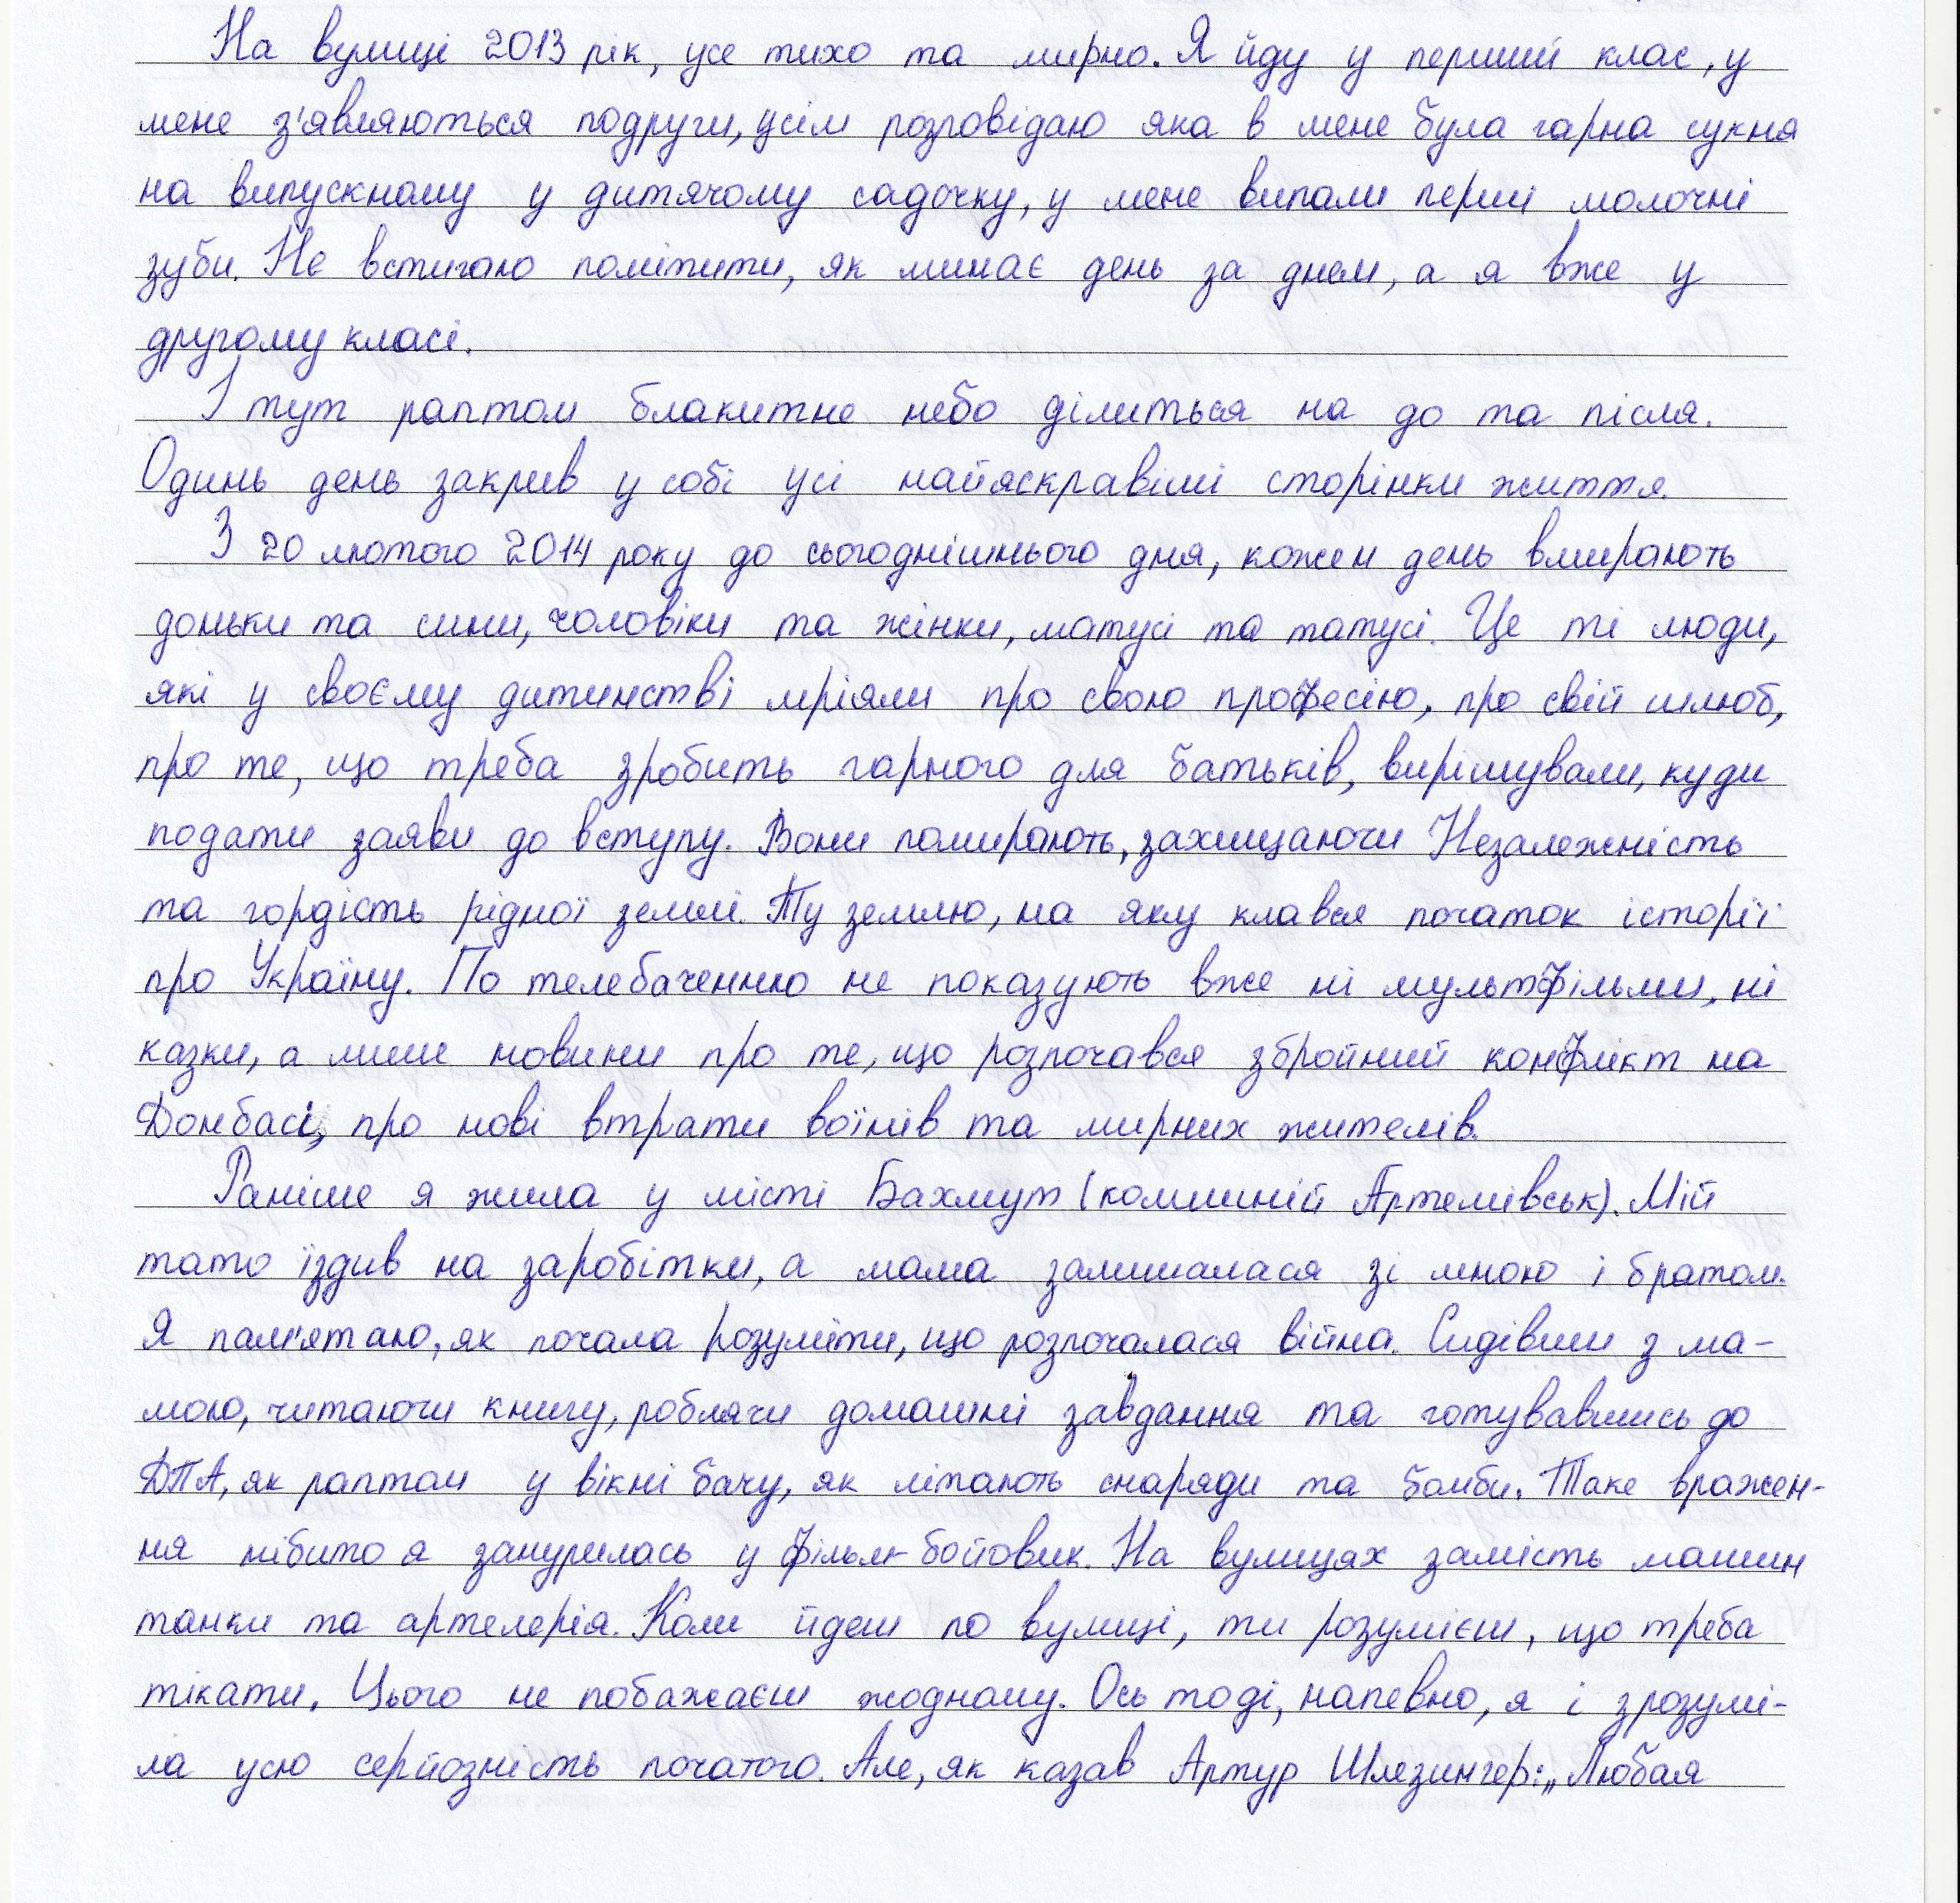 На вулиці 2013 рік, усе тихо та мирно. Я йду у перший клас, у
мене з'являються подруги, усім розповідаю яка в мене була гарна сукня
на випускному у дитячому садочку, у мене випали перші молочні
зуби. Не встигаю помітити, як минає день за днем, а я вже у
другому класі.
І тут раптом блакитне небо ділиться на до та після.
Одинь день закрив у собі усі найяскравіші сторінки життя.
З 20 лютого 2014 року до сьогоднішнього дня, кожен день вмирають
доньки та сини, чоловіки та жінки, матусі та татусі. Це ті люди,
які у своєму дитинстві мріяли про свою професію, про свій шлюб,
про те, що треба зробить гарного для батьків, вирішували, куди
подати заяви до вступу. Вони помирають, захищаючи Незалежність
та гордість рідної землі. Ту землю, на яку клався початок історії
про Україну. По телебаченню не показують вже ні мультфільми, ні
казки, а лише новини про те, що розпочався збройний конфлікт на
Донбасі, про нові втрати воїнів та мирних жителів.
Раніше я жила у місті Бахмут (комишній Артемівськ). Мій
тато їздив на заробітки, а мама залишалася зі мною і братом.
Я пам'ятаю, як почала розуміти, що розпочалася війна. Сидівши з ма-
мою, читаючи книгу, роблячи домашні завдання та готувавшись до
ДПА, як раптом у вікні бачу, як літають снаряди та бомби. Таке вражен-
ня нібито я занурилась у фільм-бойовик. На вулицях замість машин
танки та артелерія. Коли йдеш по вулиці, ти розумієш, що треба
тікати. Цього не побажаєш жодному. Ось тоді, напевно, я і зрозумі-
ла усю серйозність початого. Але, як казав Артур Шлезингер: „Любая